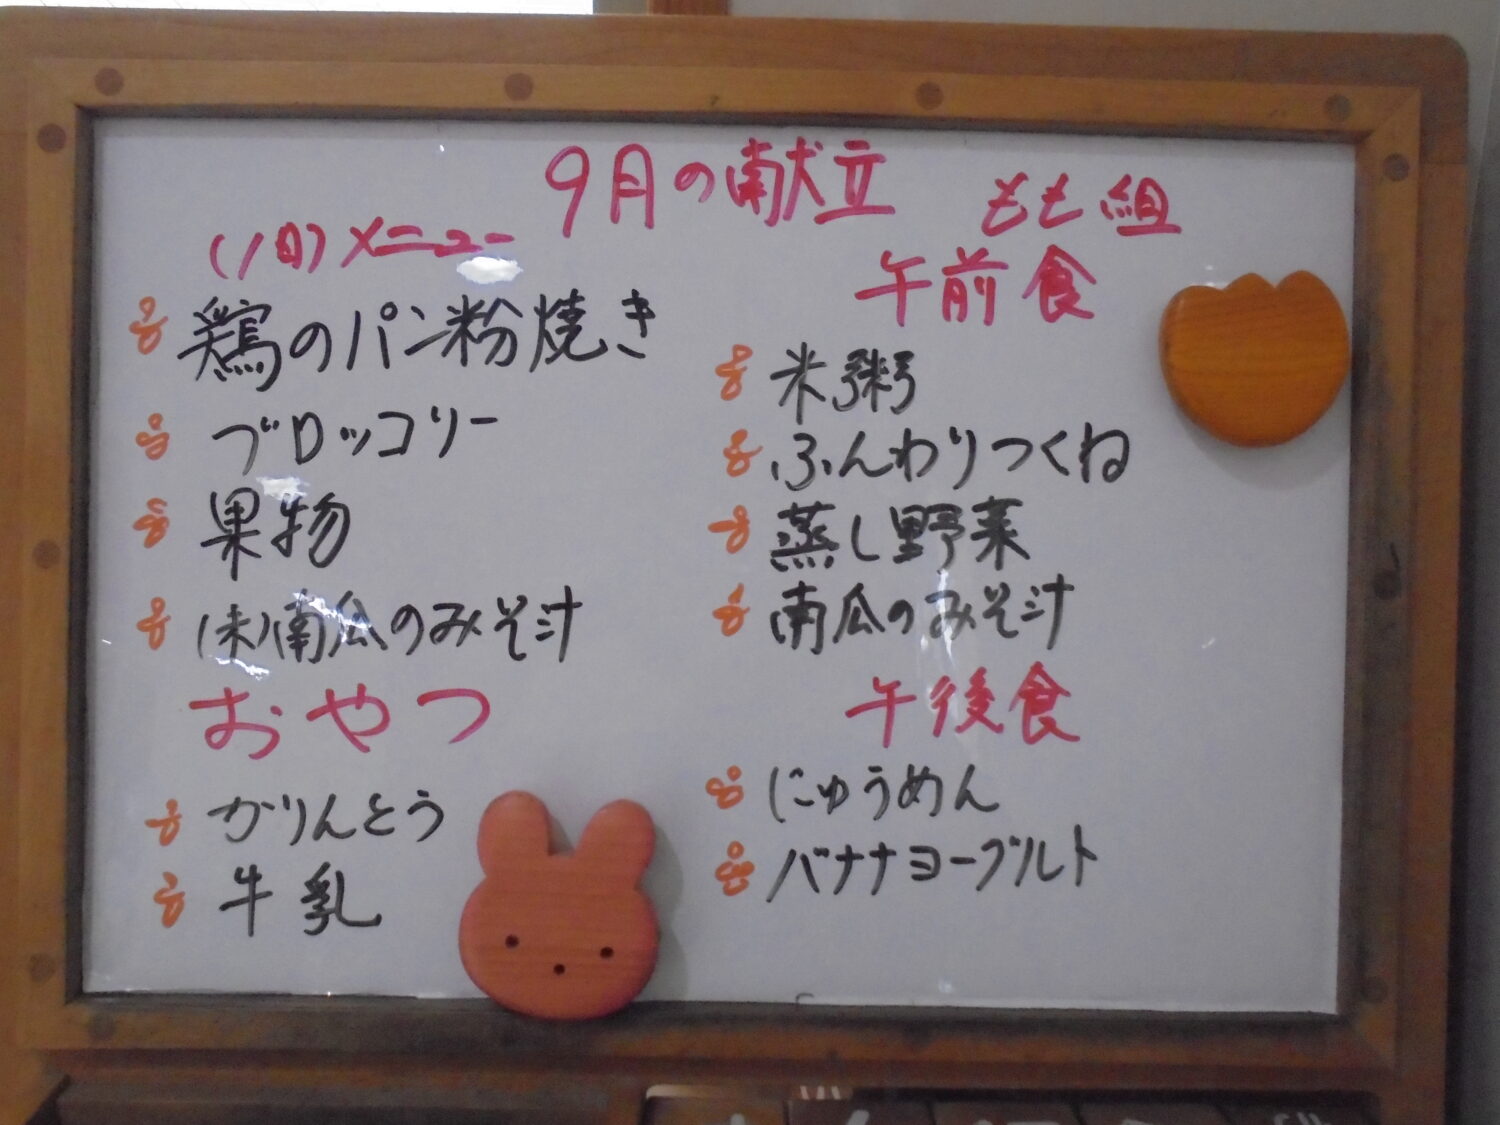 9月の献立
(1日)メニュー
鶏のパン粉焼き
ブロッコリー
果物
(未)南瓜のみそ汁
おやつ
かりんとう
牛乳
もも組
午前食
米粥
ふんわりつくね
蒸し野菜
南瓜のみそ汁
午後食
にゅうめん
バナナヨーグルト